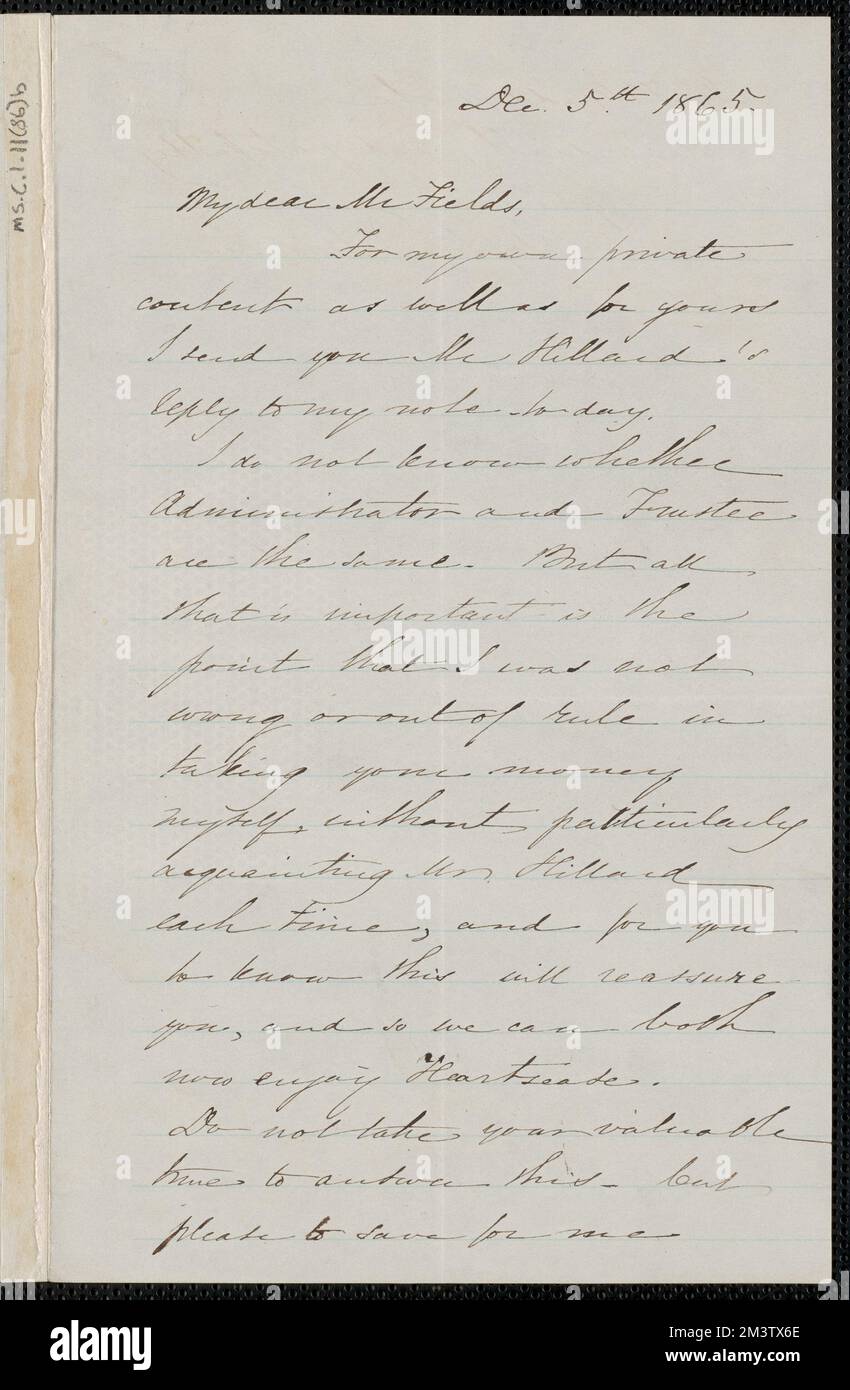 Ms.C.1.11(86)b
Dec. 5th 1865.
My dear Mr Fields,
For my own private
content as well as for yours
I send you Mr Hillard's
reply to my note to day.
I do not know whether
Administrator and Trustee
are the same. But all
that is important is the
point that I was not
wrong or out of rule in
taking your money
myself, without particularly
acquainting Mr. Hillard
each time, and for you
to know this will reassure
you, and so we can both
now enjoy Heartsease.
Do not take your valuable
time to answer this - but
please to save for me
alamy
Image ID: 2M3TX6E
www.alamy.com